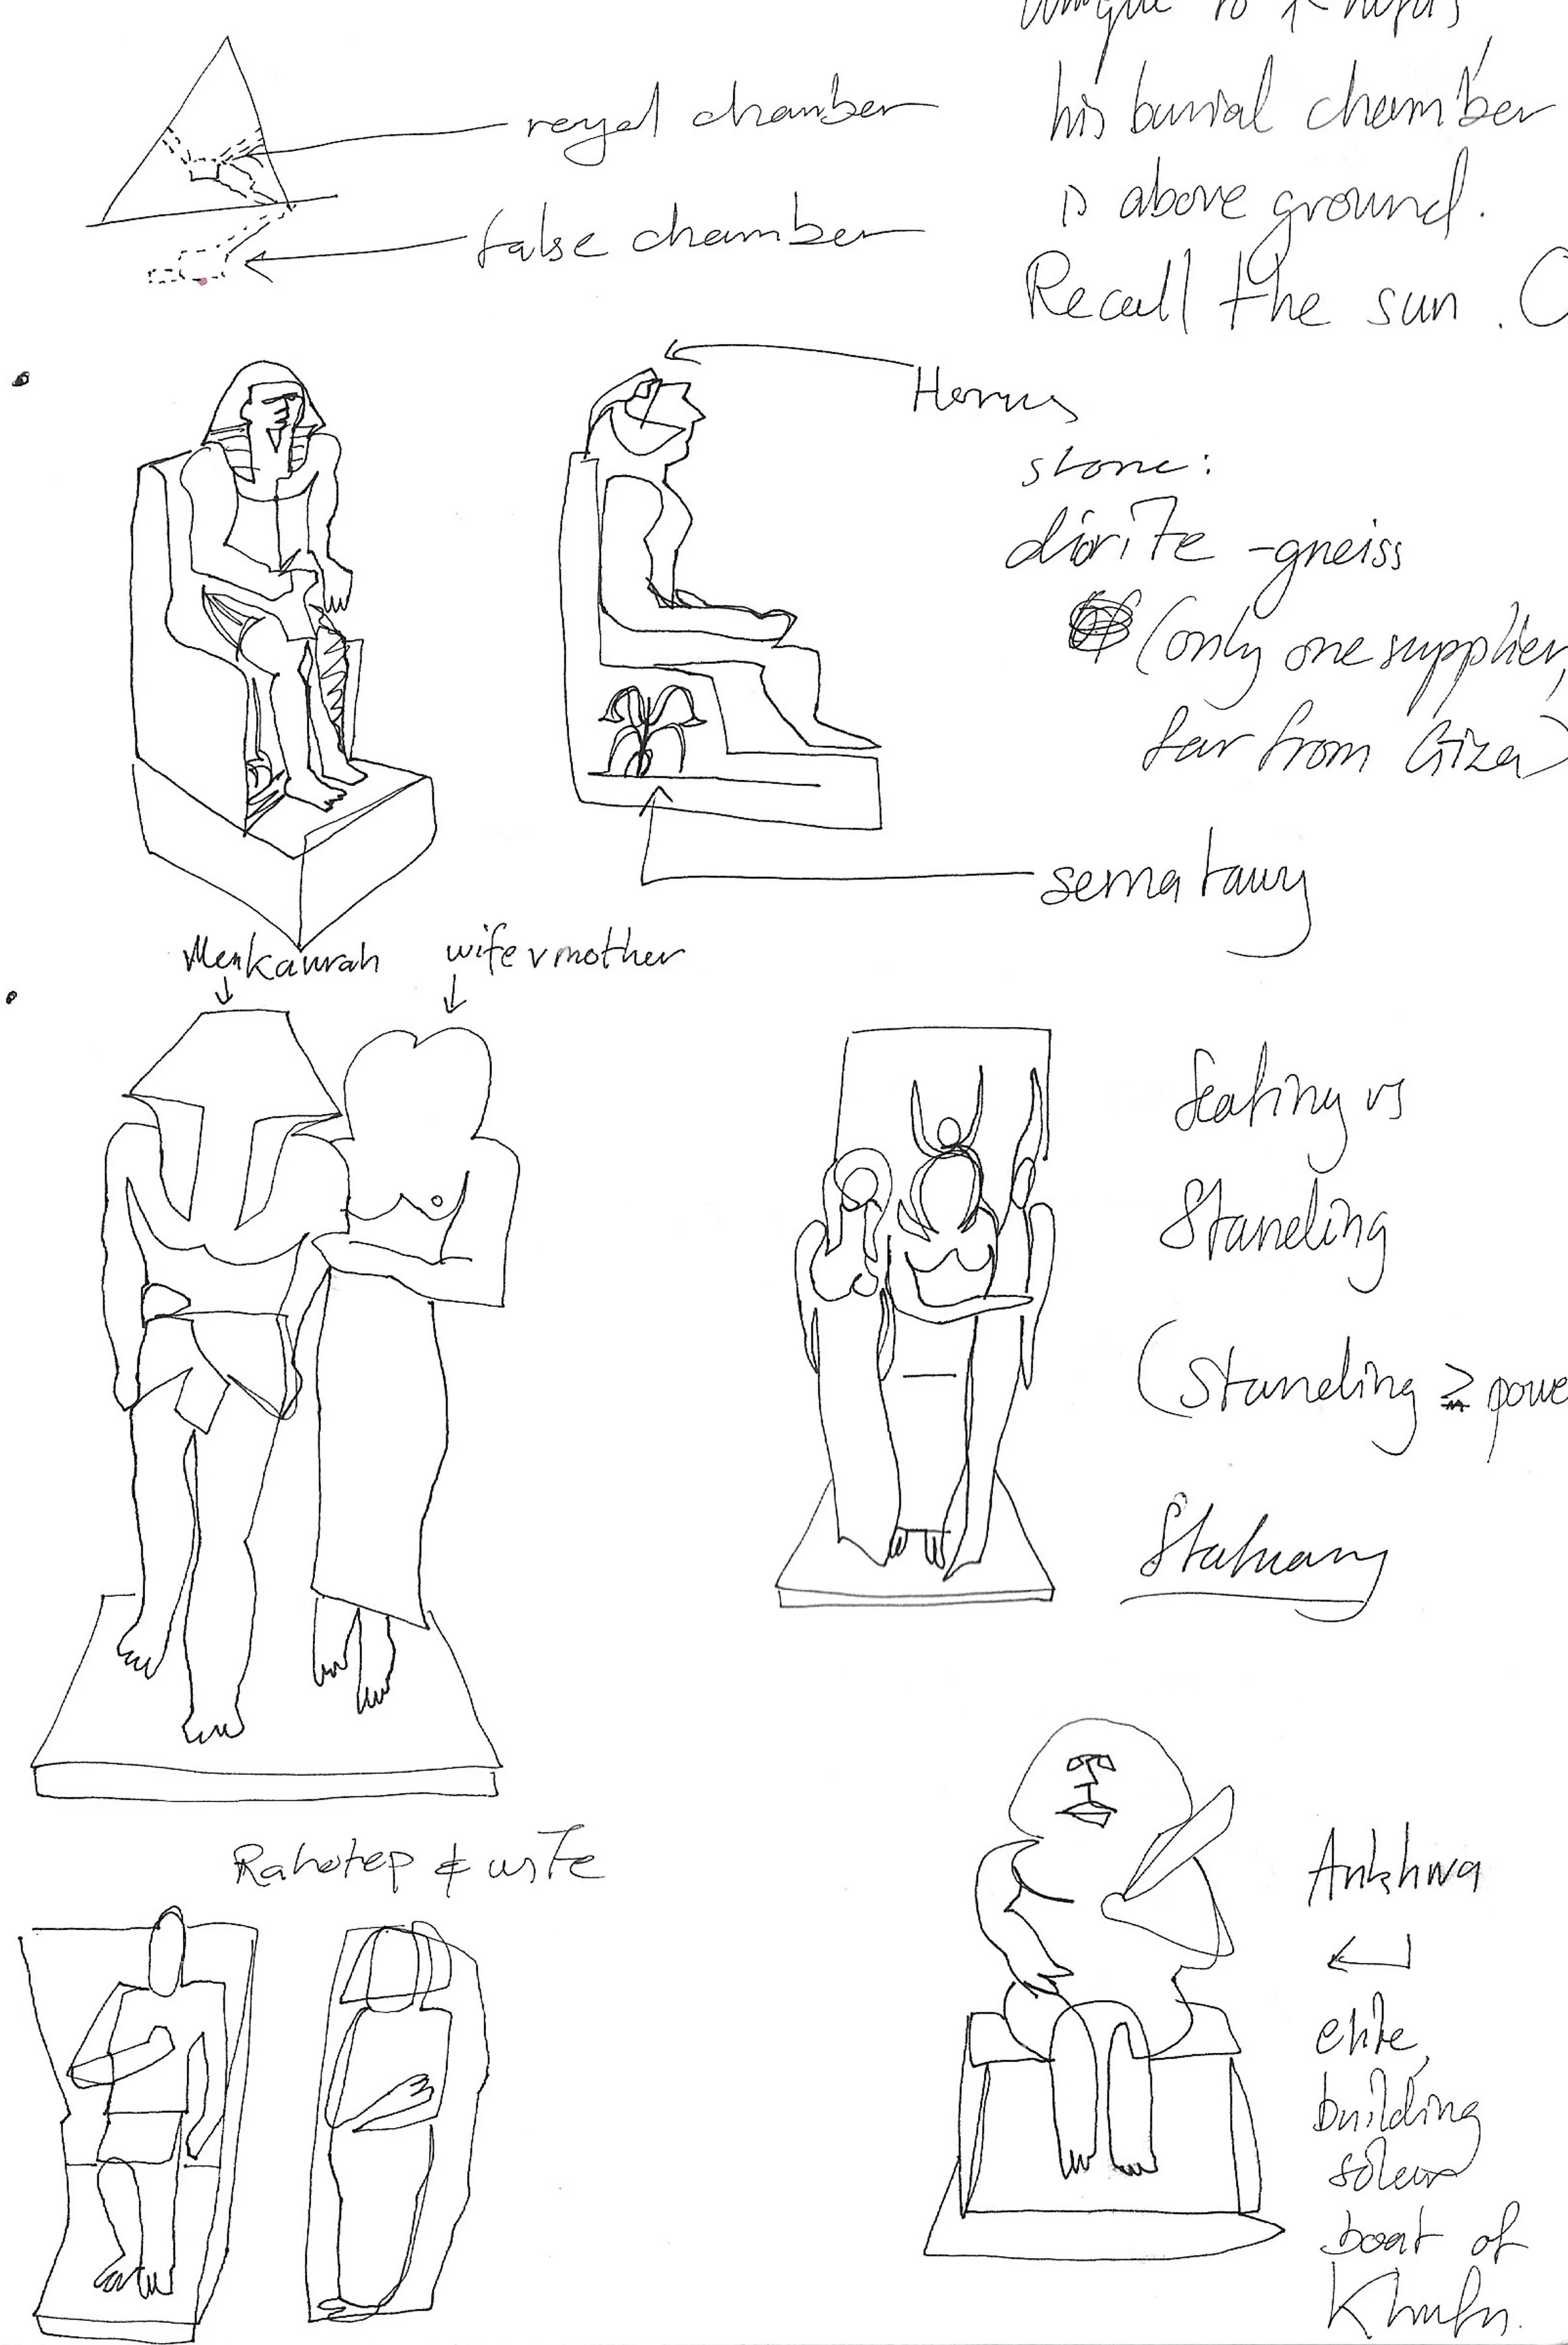 to Khufu,
his burial chamber
is above ground.
Recall the sun.
royal chamber
false chamber
Horus
stone:
diorite-gneiss
(only one supplier,
far from Giza)
sematawy
Menkaurah
wife v mother
Seating vs
Standing
(Standing ≥ powe
Statuary
Rahotep & wife
Ankhwa
elite,
building
solar
boat of
Khufu.